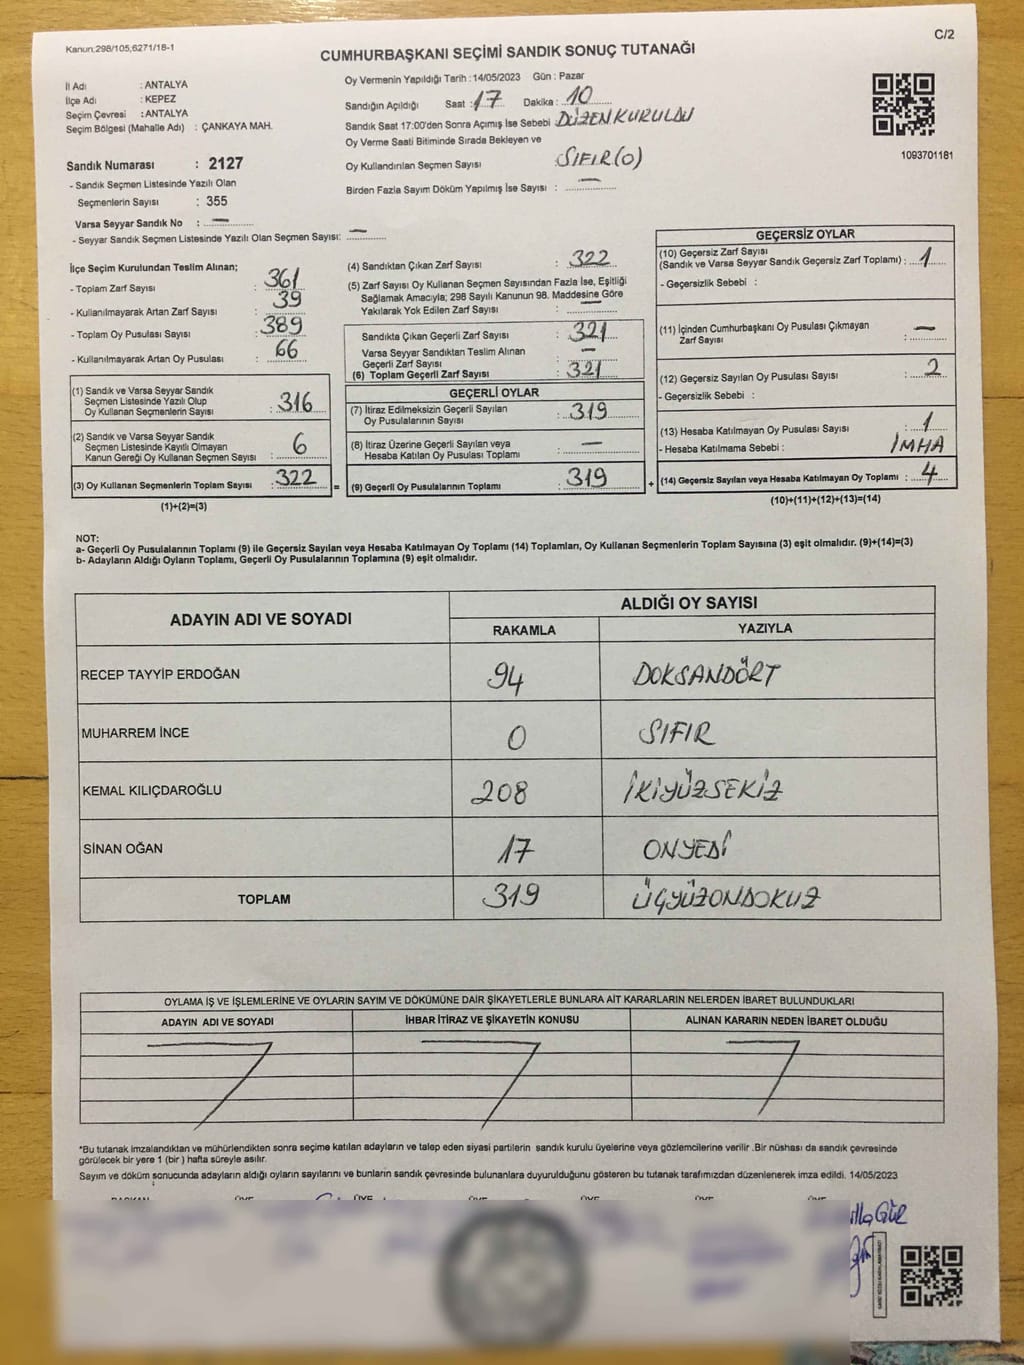 Kanun;298/105;6271/18-1
C/2
CUMHURBAŞKANI SEÇİMİ SANDIK SONUÇ TUTANAĞI
İl Adı : ANTALYA
İlçe Adı : KEPEZ
Seçim Çevresi : ANTALYA
Seçim Bölgesi (Mahalle Adı) : ÇANKAYA MAH.
Sandık Numarası : 2127
- Sandık Seçmen Listesinde Yazılı Olan
Seçmenlerin Sayısı : 355
Varsa Seyyar Sandık No : —
- Seyyar Sandık Seçmen Listesinde Yazılı Olan Seçmen Sayısı: —
Oy Vermenin Yapıldığı Tarih : 14/05/2023 Gün : Pazar
Sandığın Açıldığı Saat : 17 Dakika : 10
Sandık Saat 17:00'den Sonra Açımış İse Sebebi : DÜZEN KURULDU
Oy Verme Saati Bitiminde Sırada Bekleyen ve
Oy Kullandırılan Seçmen Sayısı SIFIR (0)
Birden Fazla Sayım Döküm Yapılmış İse Sayısı : —
1093701181
İlçe Seçim Kurulundan Teslim Alınan;
- Toplam Zarf Sayısı : 361
- Kullanılmayarak Artan Zarf Sayısı : 39
- Toplam Oy Pusulası Sayısı : 389
- Kullanılmayarak Artan Oy Pusulası : 66
(1) Sandık ve Varsa Seyyar Sandık
Seçmen Listesinde Yazılı Olup
Oy Kullanan Seçmenlerin Sayısı : 316
(2) Sandık ve Varsa Seyyar Sandık
Seçmen Listesinde Kayıtlı Olmayan
Kanun Gereği Oy Kullanan Seçmen Sayısı : 6
(3) Oy Kullanan Seçmenlerin Toplam Sayısı : 322 =
(1)+(2)=(3)
(4) Sandıktan Çıkan Zarf Sayısı : 322
(5) Zarf Sayısı Oy Kullanan Seçmen Sayısından Fazla İse, Eşitliği
Sağlamak Amacıyla; 298 Sayılı Kanunun 98. Maddesine Göre
Yakılarak Yok Edilen Zarf Sayısı : —
Sandıkta Çıkan Geçerli Zarf Sayısı : 321
Varsa Seyyar Sandıktan Teslim Alınan
Geçerli Zarf Sayısı : —
(6) Toplam Geçerli Zarf Sayısı : 321
GEÇERLİ OYLAR
(7) İtiraz Edilmeksizin Geçerli Sayılan
Oy Pusulasının Sayısı : 319
(8) İtiraz Üzerine Geçerli Sayılan veya
Hesaba Katılan Oy Pusulası Toplamı : —
(9) Geçerli Oy Pusulalarının Toplamı : 319 +
GEÇERSİZ OYLAR
(10) Geçersiz Zarf Sayısı
(Sandık ve Varsa Seyyar Sandık Geçersiz Zarf Toplamı) : 1
- Geçersizlik Sebebi :
(11) İçinden Cumhurbaşkanı Oy Pusulası Çıkmayan
Zarf Sayısı : —
(12) Geçersiz Sayılan Oy Pusulası Sayısı : 2
- Geçersizlik Sebebi :
(13) Hesaba Katılmayan Oy Pusulası Sayısı : 1
- Hesaba Katılmama Sebebi : İMHA
(14) Geçersiz Sayılan veya Hesaba Katılmayan Oy Toplamı : 4
(10)+(11)+(12)+(13)=(14)
NOT:
a- Geçerli Oy Pusulalarının Toplamı (9) ile Geçersiz Sayılan veya Hesaba Katılmayan Oy Toplamı (14) Toplamları, Oy Kullanan Seçmenlerin Toplam Sayısına (3) eşit olmalıdır. (9)+(14)=(3)
b- Adayların Aldığı Oyların Toplamı, Geçerli Oy Pusulalarının Toplamına (9) eşit olmalıdır.
ADAYIN ADI VE SOYADI
ALDIĞI OY SAYISI
RAKAMLA YAZIYLA
RECEP TAYYİP ERDOĞAN 94 DOKSANDÖRT
MUHARREM İNCE 0 SIFIR
KEMAL KILIÇDAROĞLU 208 İKİYÜZSEKİZ
SİNAN OĞAN 17 ONYEDİ
TOPLAM 319 ÜÇYÜZONDOKUZ
OYLAMA İŞ VE İŞLEMLERİNE VE OYLARIN SAYIM VE DÖKÜMÜNE DAİR ŞİKAYETLERLE BUNLARA AİT KARARLARIN NELERDEN İBARET BULUNDUKLARI
ADAYIN ADI VE SOYADI İHBAR İTİRAZ VE ŞİKAYETİN KONUSU ALINAN KARARIN NEDEN İBARET OLDUĞU
*Bu tutanak imzalandıktan ve mühürlendikten sonra seçime katılan adayların ve talep eden siyasi partilerin sandık kurulu üyelerine veya gözlemcilerine verilir .Bir nüshası da sandık çevresinde
görülecek bir yere 1 (bir ) hafta süreyle asılır.
Sayım ve döküm sonucunda adayların aldığı oyların sayılarını ve bunların sandık çevresinde bulunanlara duyurulduğunu gösteren bu tutanak tarafımızdan düzenlenerek imza edildi. 14/05/2023
BAŞKAN ÜYE ÜYE ÜYE ÜYE ÜYE ÜYE